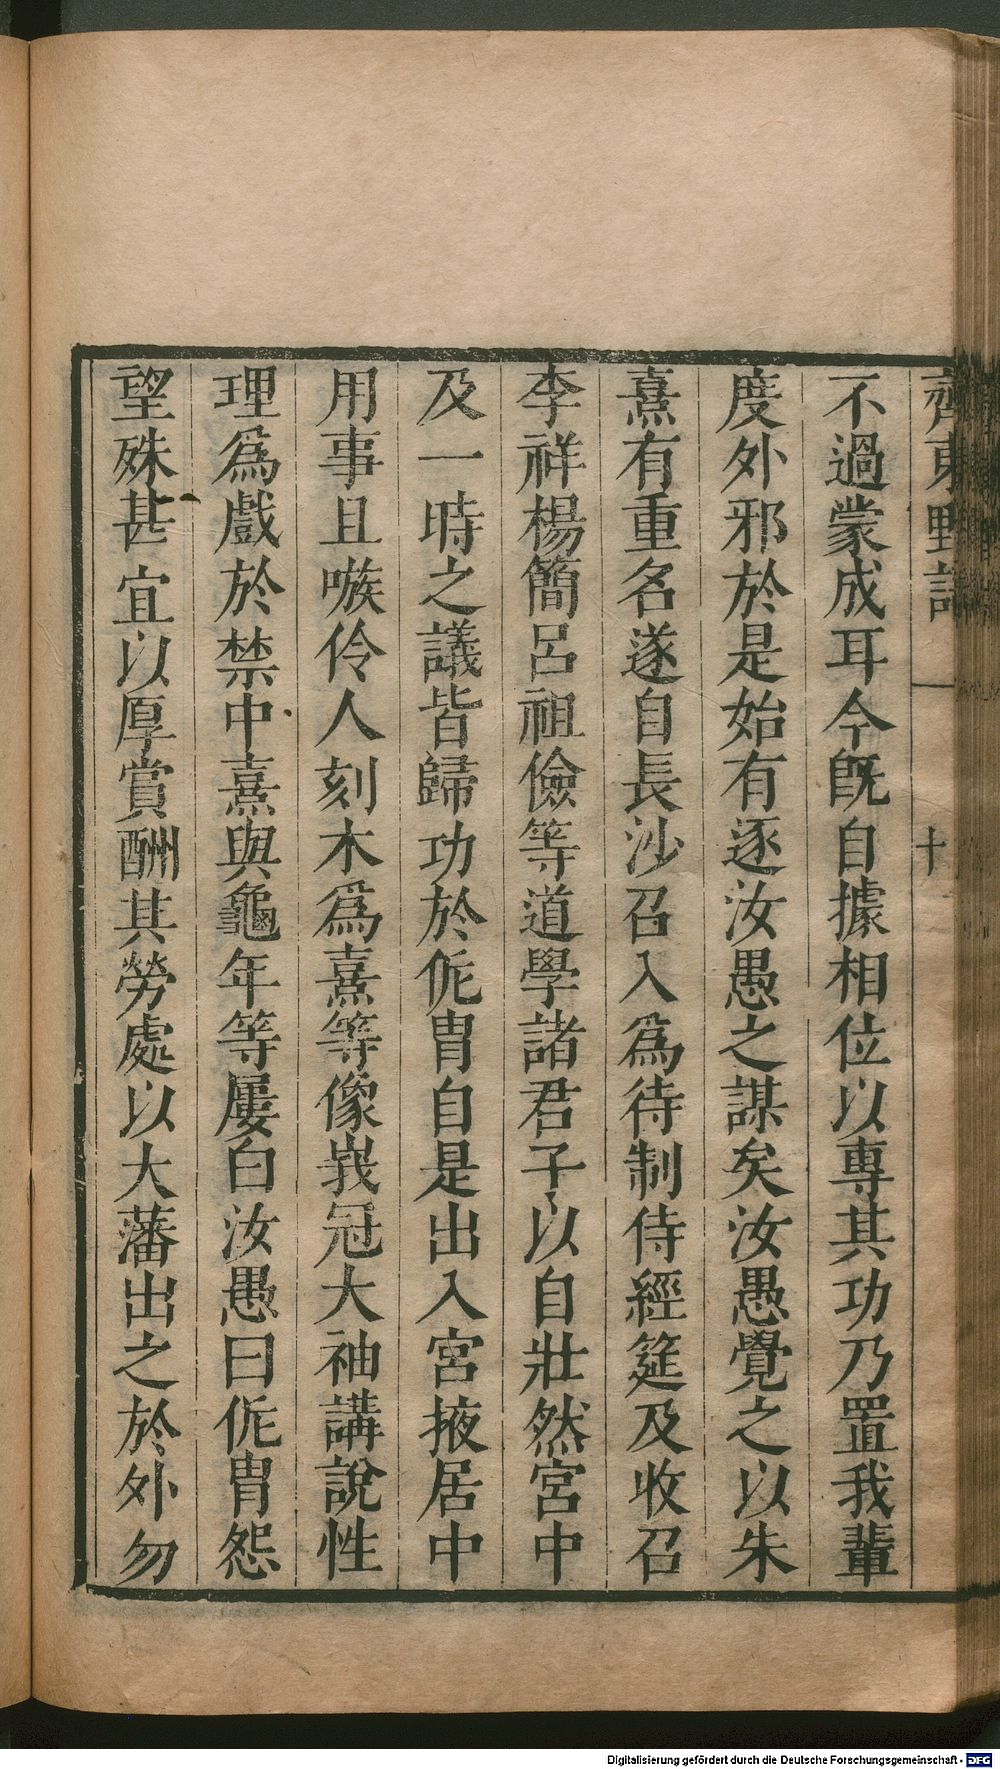 齊東野語
十
不過蒙成耳今旣自據相位以專其功乃置我輩
度外邪於是始有逐汝愚之謀矣汝愚覺之以朱
熹有重名遂自長沙召入爲待制侍經筵及收召
李祥楊簡呂祖儉等道學諸君子以自壯然宮中
及一時之議皆歸功於侂冑自是出入宮掖居中
用事且嗾伶人刻木爲熹等像峩冠大袖講說性
理爲戲於禁中熹與龜年等屢白汝愚曰侂冑怨
望殊甚宜以厚賞酬其勞處以大藩出之於外勿
Digitalisierung gefördert durch die Deutsche Forschungsgemeinschaft - DFG